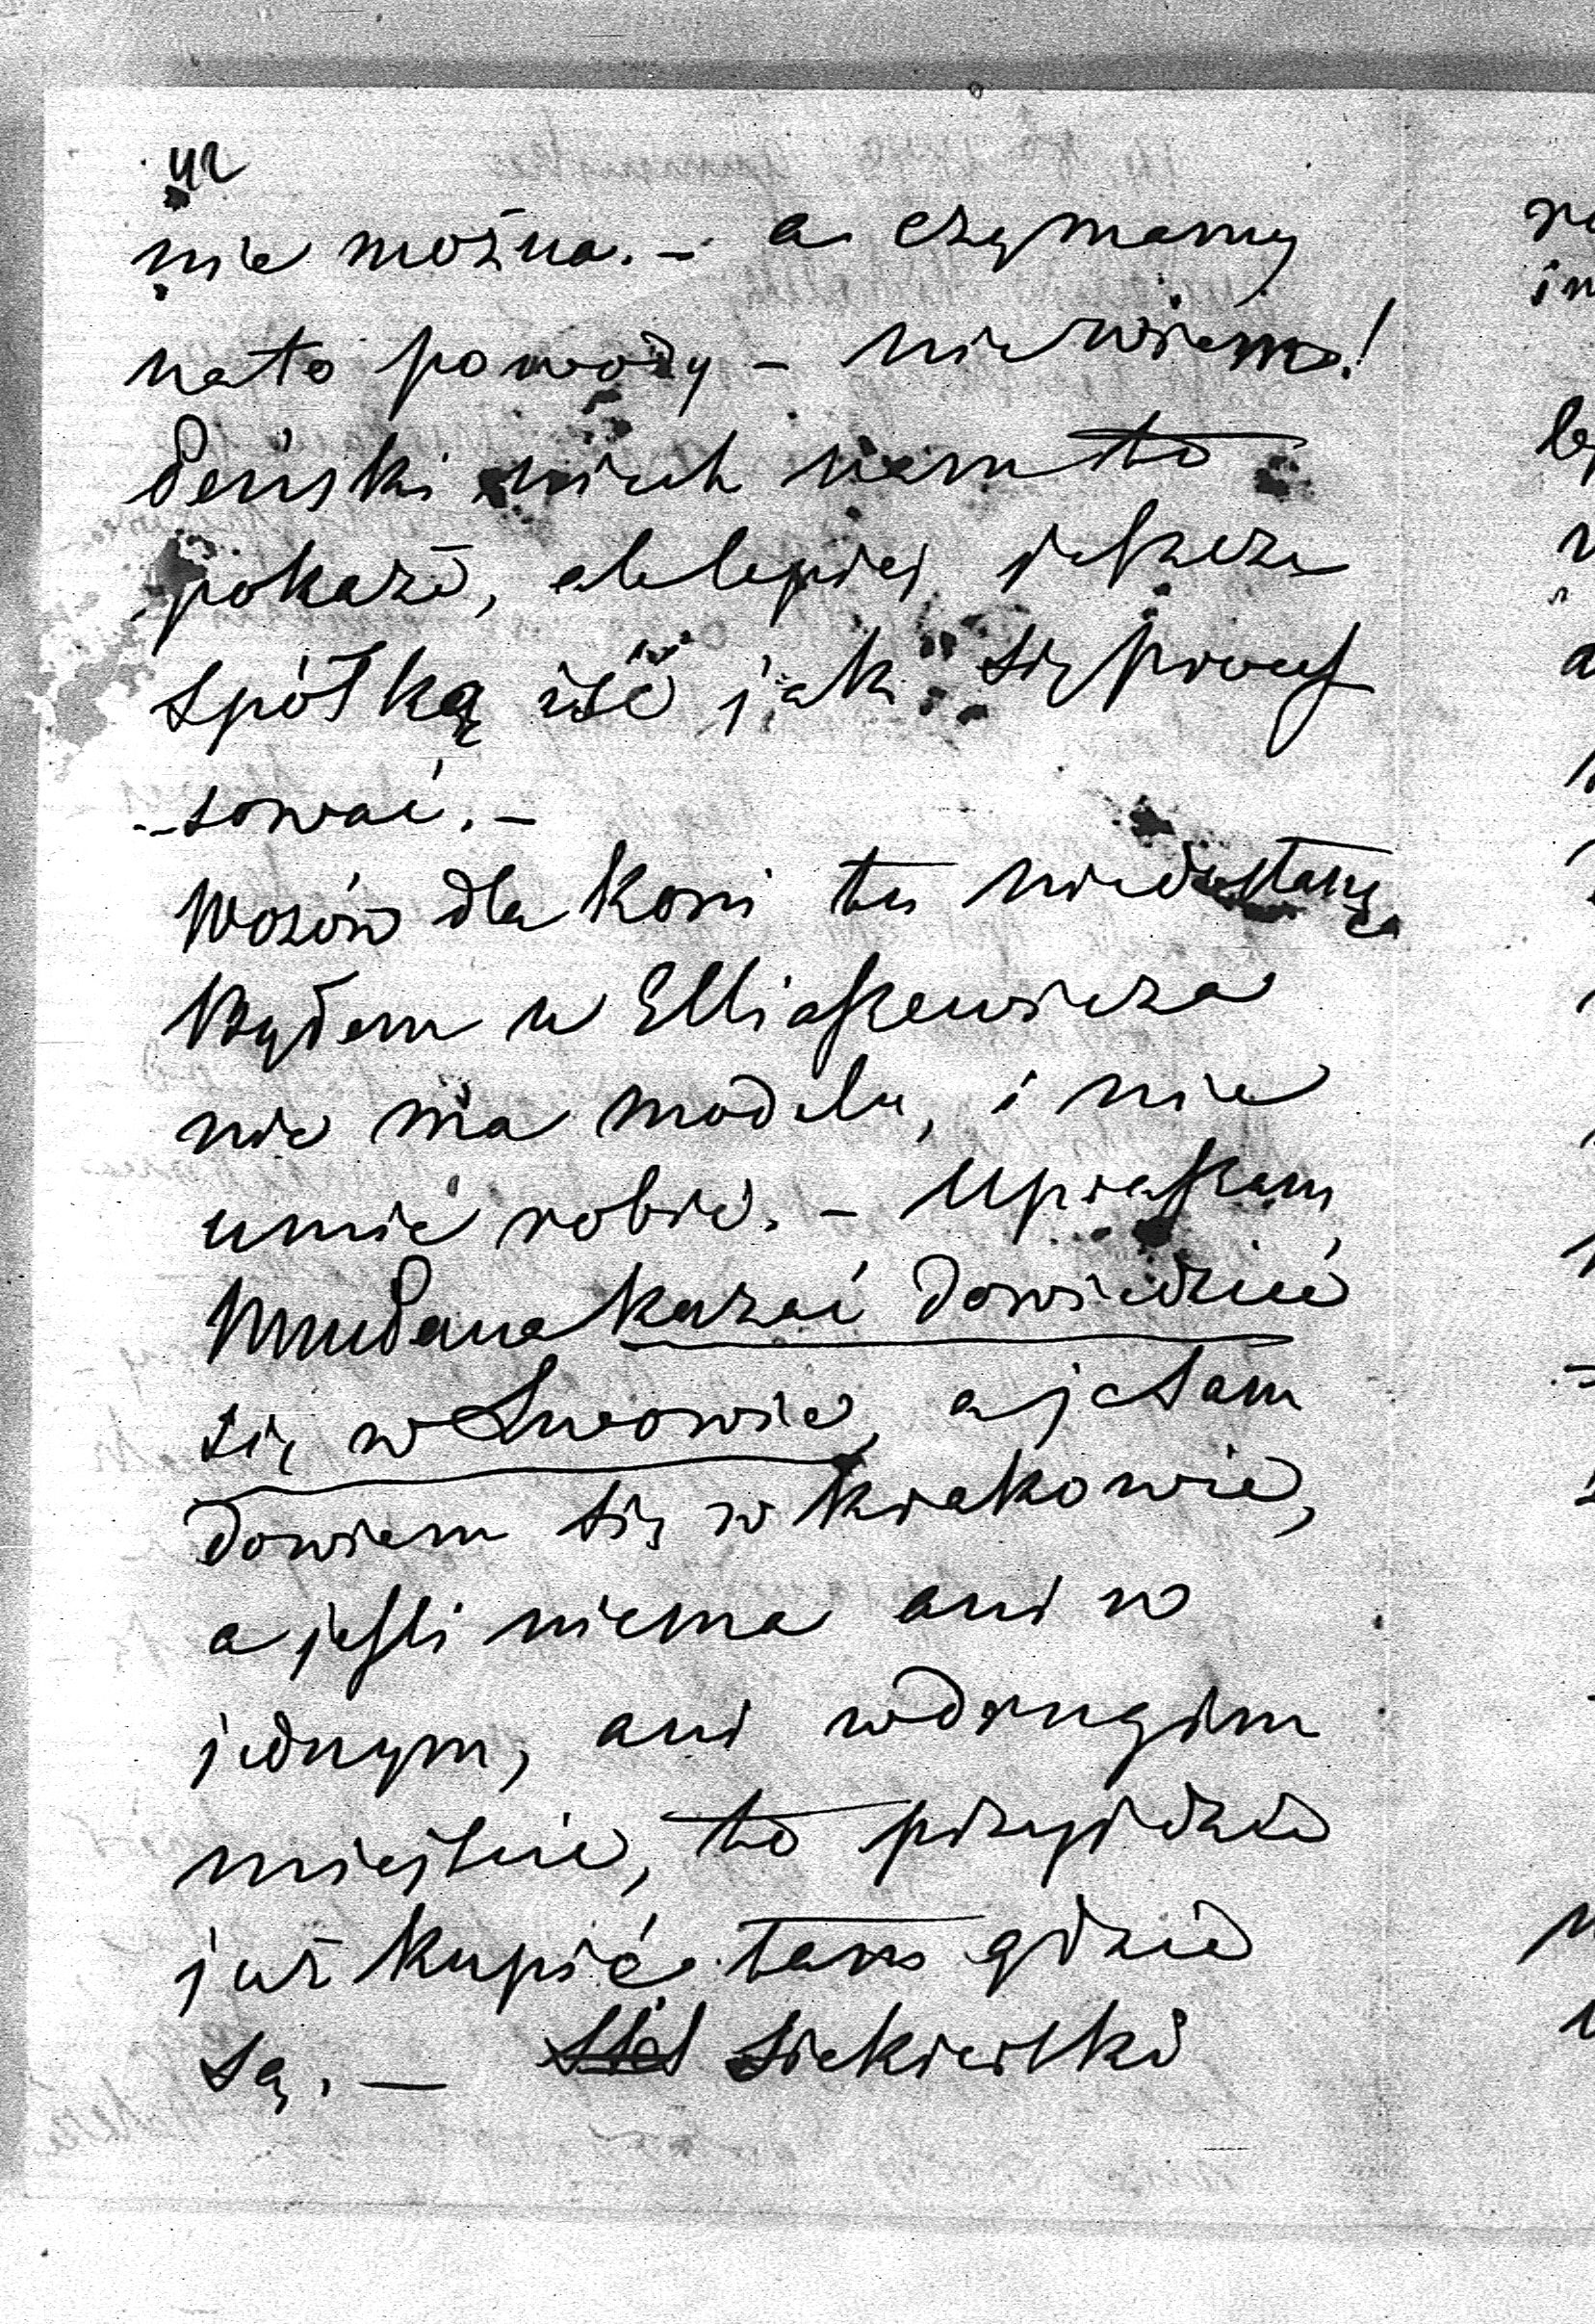 nie można. – a czy mamy
na to powody – nie wiem!
niech nam to
pokaże, ale lepiej jeszcze
spółką iść jak się proces
sować. –
Wozów dla koni tu nie dostanę
Byłem u Elliaszewicza
nie ma modelu, i nie
umie robić. – Upraszam
kazać dowiedzieć
się w Lwowie, a ja tam
dowiem się w Krakowie,
a jeśli niema ani w
jednym, ani w drugim
miejscie, to przyjdzie
już kupić tam gdzie
są. – siekierki